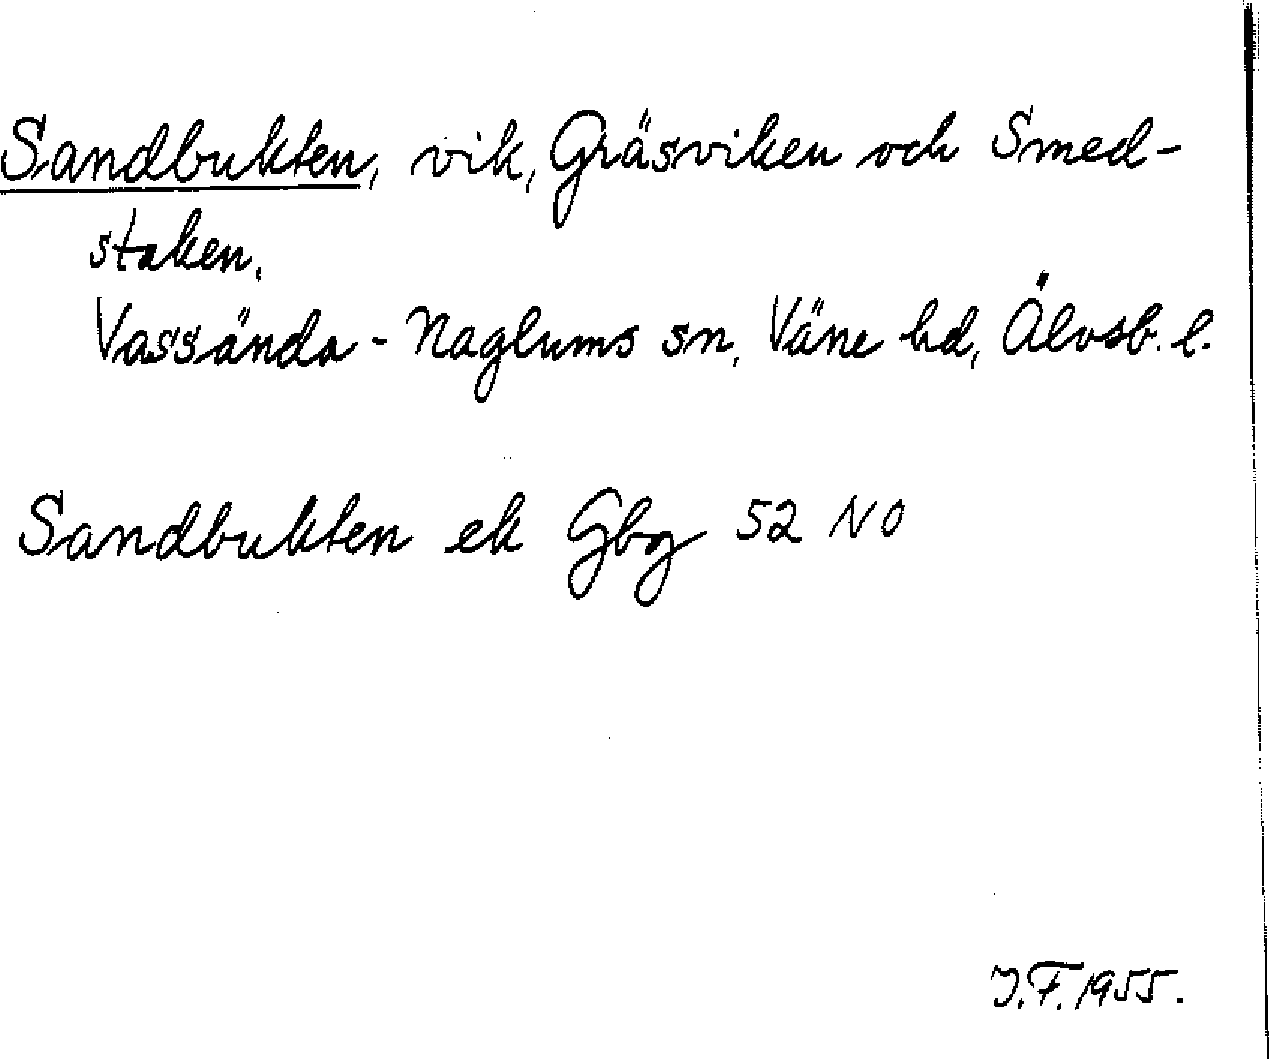 Sandbukten, vik, Gräsviken och Smed-
staken,
Vassända-Naglums sn, Väne hd, Älvsb. l.
Sandbukten ek Gbg 52 NO
J.F. 1955.